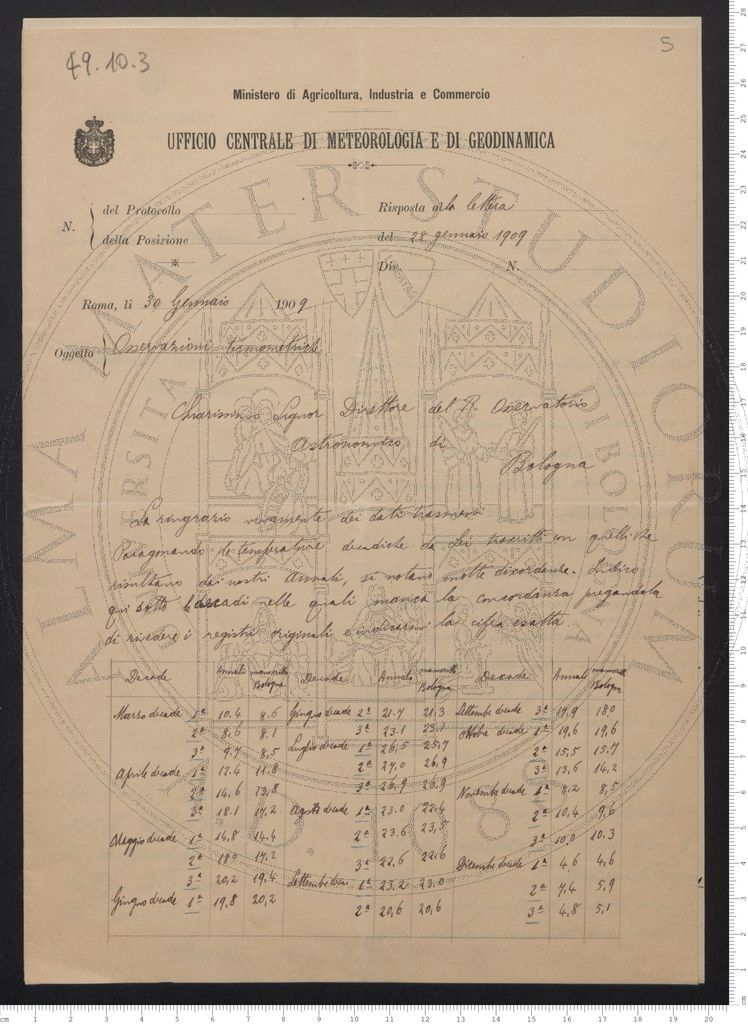 49.10.3
5
Ministero di Agricoltura, Industria e Commercio
UFFICIO CENTRALE DI METEOROLOGIA E DI GEODINAMICA
N. del Protocollo
della Posizione
Risposta alla lettera
del 28 gennaio 1909
Div. N.
Roma, li 30 Gennaio 1909
Oggetto Osservazioni termometriche
Chiarissimo Signor Direttore del R. Osservatorio
Astronomico di
Bologna
La ringrazio vivamente dei dati trasmessi
Paragonando le temperature decadiche da Lei trascritte con quelle che
risultano dai nostri Annali, si notano molte discordanze. Indico
qui sotto le decadi nelle quali manca la concordanza pregandola
di rivedere i registri originali e indicarmi la cifra esatta.
Decade Annali manoscritto Bologna Decade Annali manoscritto Bologna Decade Annali manoscritto Bologna
Marzo decade 1ª 10,4 8,6 Giugno decade 2ª 21,7 21,3 Settembre decade 3ª 17,9 18,0
2ª 8,6 8,1 3ª 23,1 23,1 Ottobre decade 1ª 19,6 19,6
3ª 9,7 8,5 Luglio decade 1ª 26,5 25,7 2ª 15,5 15,7
Aprile decade 1ª 12,4 11,8 2ª 27,0 26,9 3ª 13,6 14,2
2ª 14,6 13,8 3ª 26,9 26,9 Novembre decade 1ª 8,2 8,5
3ª 18,1 17,2 Agosto decade 1ª 23,0 22,4 2ª 10,4 9,6
Maggio decade 1ª 14,8 14,4 2ª 23,6 23,5 3ª 10,0 10,3
2ª 18,0 17,2 3ª 22,6 22,6 Dicembre decade 1ª 4,6 4,6
3ª 20,2 19,4 Settembre 1ª 23,2 23,0 2ª 7,4 5,9
Giugno decade 1ª 19,8 20,2 2ª 20,6 20,6 3ª 4,8 5,1
ALMA MATER STUDIORUM